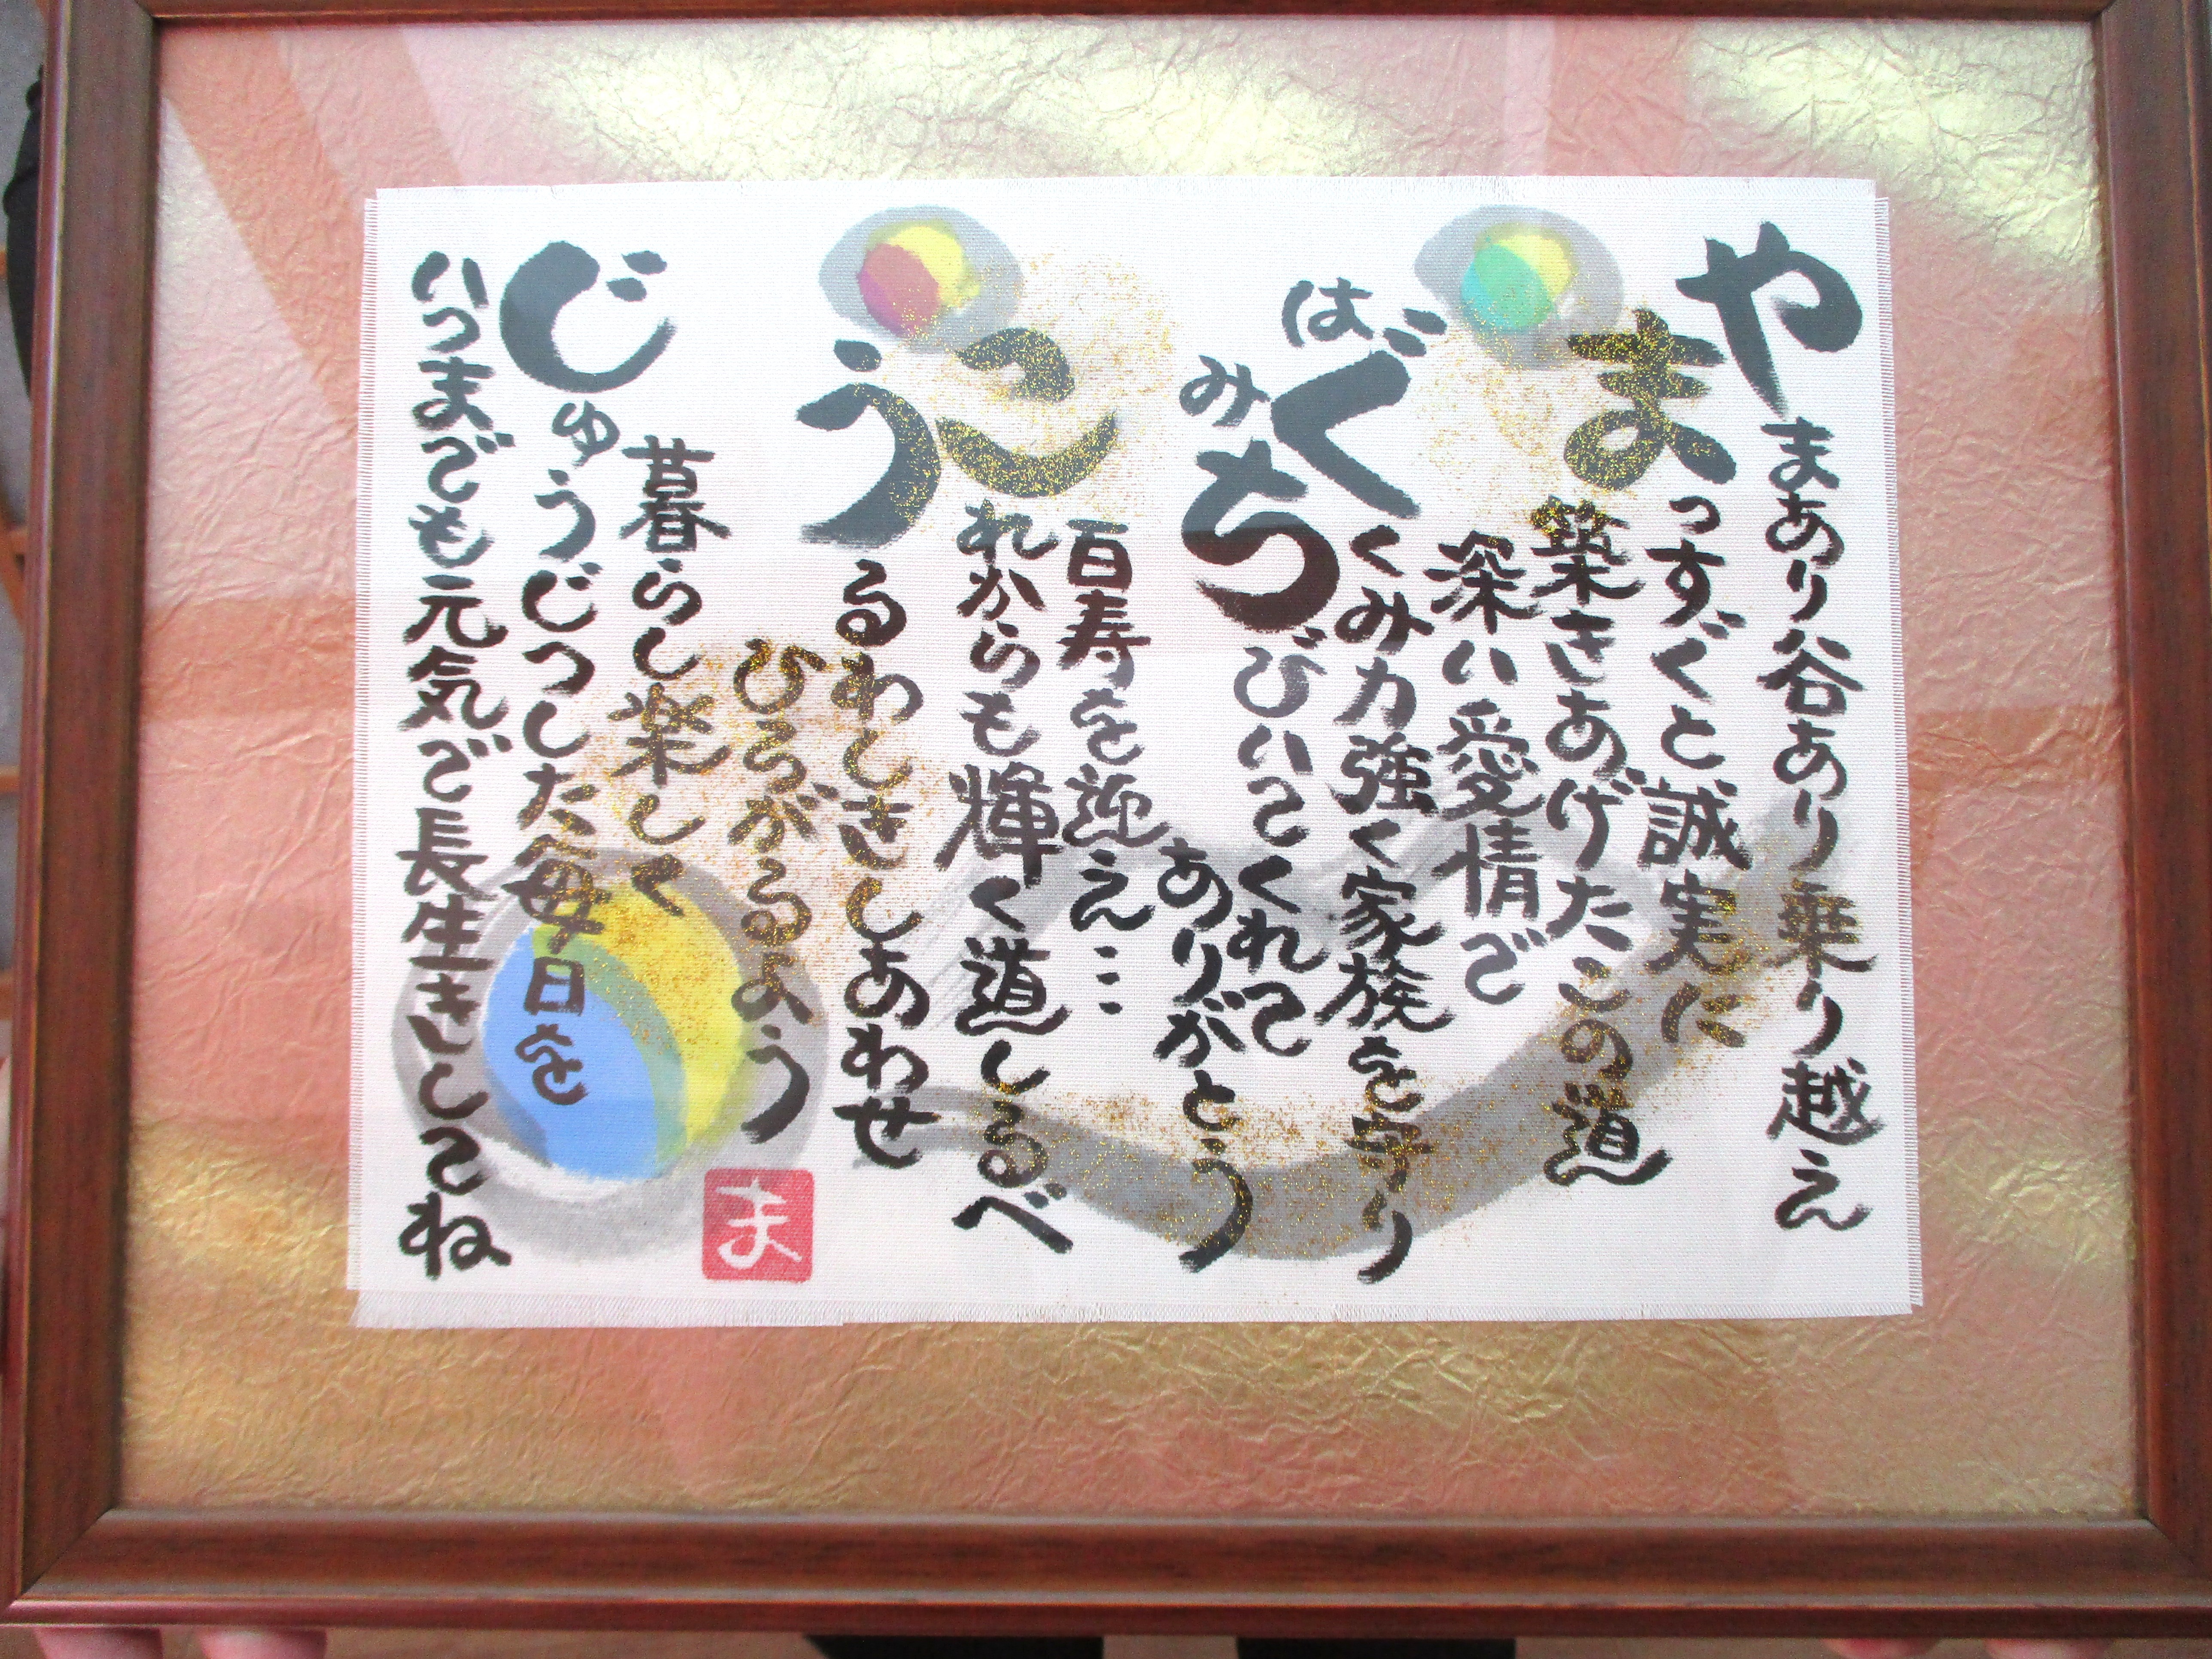 やまあり谷あり乗り越え
まっすぐと誠実に
築きあげたこの道
深い愛情で
はぐくみ力強く家族を守り
みちびいてくれて
ありがとう
百寿を迎え…
これからも輝く道しるべ
うるわしきしあわせ
ひろがるよう
暮らし楽しく
じゅうじつした毎日を
いつまでも元気で長生きしてね
ま